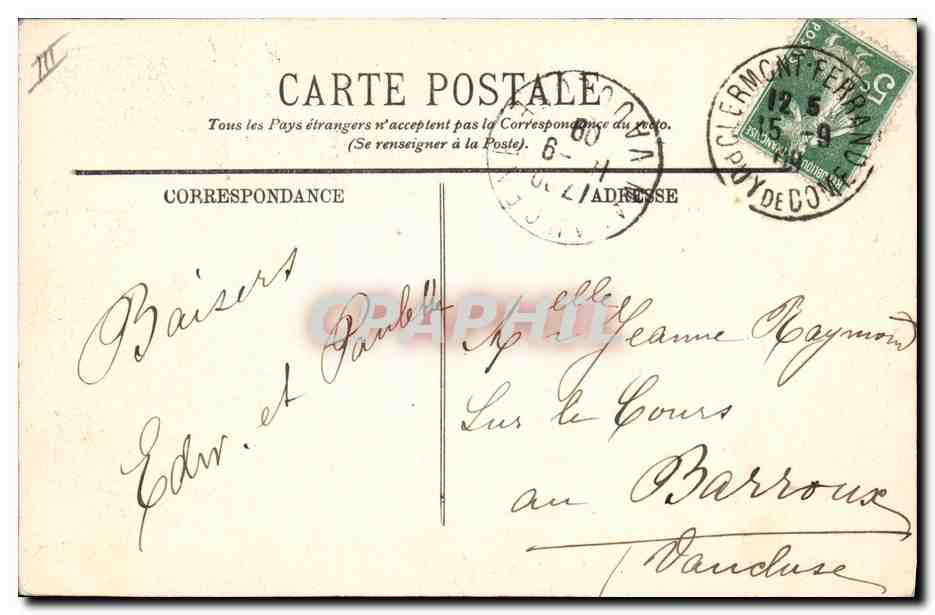 III
CARTE POSTALE
Tous les Pays étrangers n'acceptent pas la Correspondance au recto.
(Se renseigner à la Poste).
CORRESPONDANCE
ADRESSE
5
POSTES
CLERMONT-FERRAND
12 5
15 -9
09
PUY DE DOME
VAUCLUSE
09
Baisers
Edw. et Paulette
CPAPHIL
Melle Jeanne Raymond
Sur le Cours
au Barroux
Vaucluse